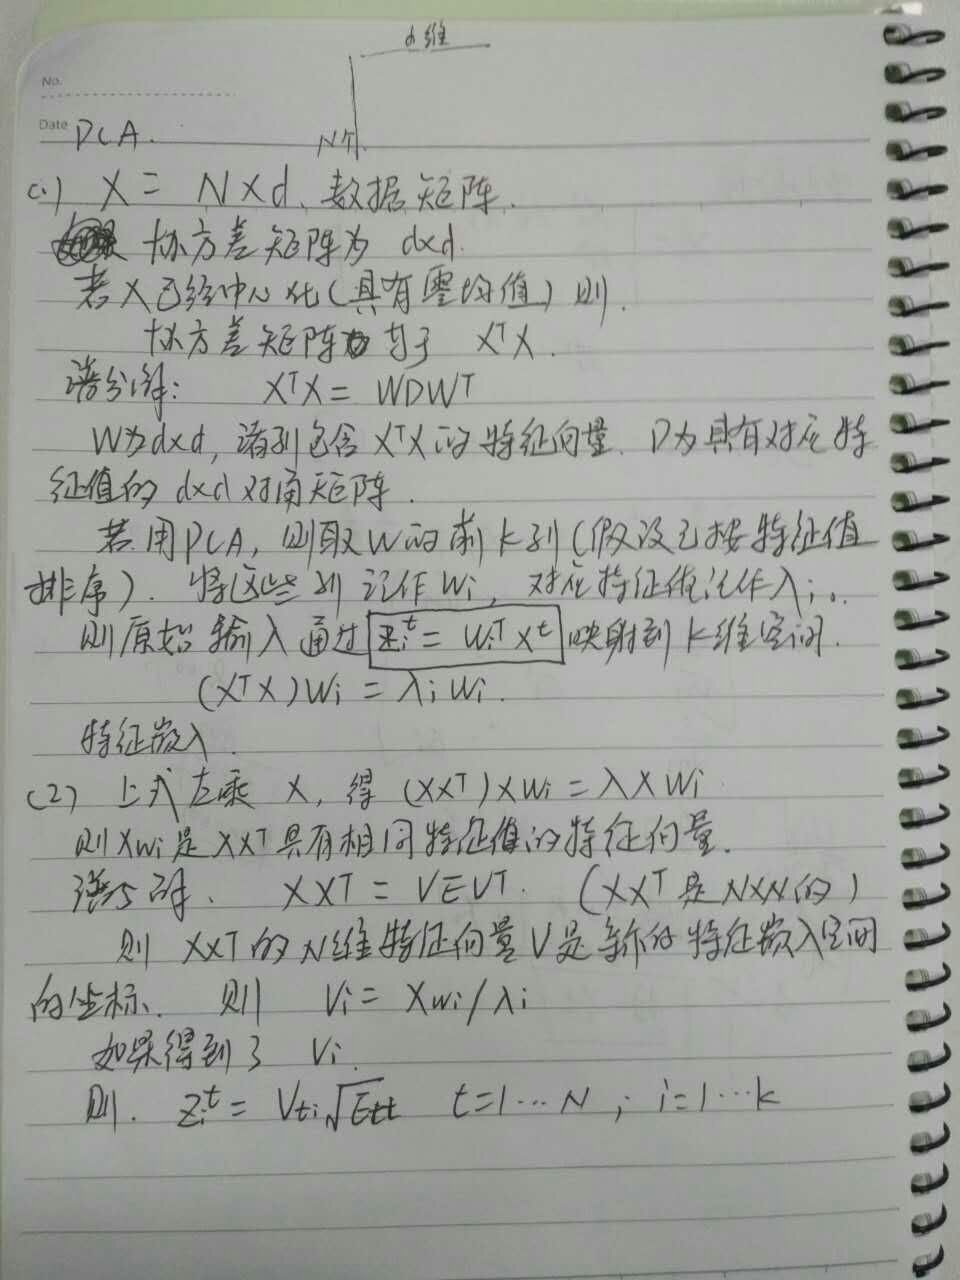 d维
No.
Date PCA.
N个
(1) X = N×d. 数据矩阵.
协方差矩阵为 d×d.
若X已经中心化(具有零均值)则.
协方差矩阵 等于 XᵀX.
谱分解: XᵀX = WDWᵀ
W为d×d, 诸列包含XᵀX的特征向量. D为具有对应特
征值的 d×d 对角矩阵.
若用PCA, 则取W的前k列(假设已按特征值
排序). 将这些列记作Wi, 对应特征值记作λi.
则原始输入通过 zᵢᵗ = Wiᵀ xᵗ 映射到k维空间.
(XᵀX)Wi = λi Wi.
特征嵌入.
(2) 上式左乘 X, 得 (XXᵀ)XWi = λXWi
则XWi是XXᵀ具有相同特征值的特征向量.
XXᵀ = VEVᵀ. (XXᵀ是N×N的)
则 XXᵀ的N维特征向量V是新的特征嵌入空间
的坐标. 则 Vi = XWi/λi
如果得到了 Vi.
则. zᵢᵗ = Vti√Ett t=1…N ; i=1…k